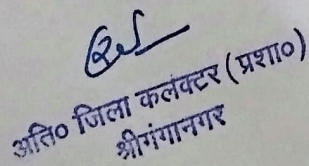 अति० जिला कलेक्टर (प्रशा०)
श्रीगंगानगर